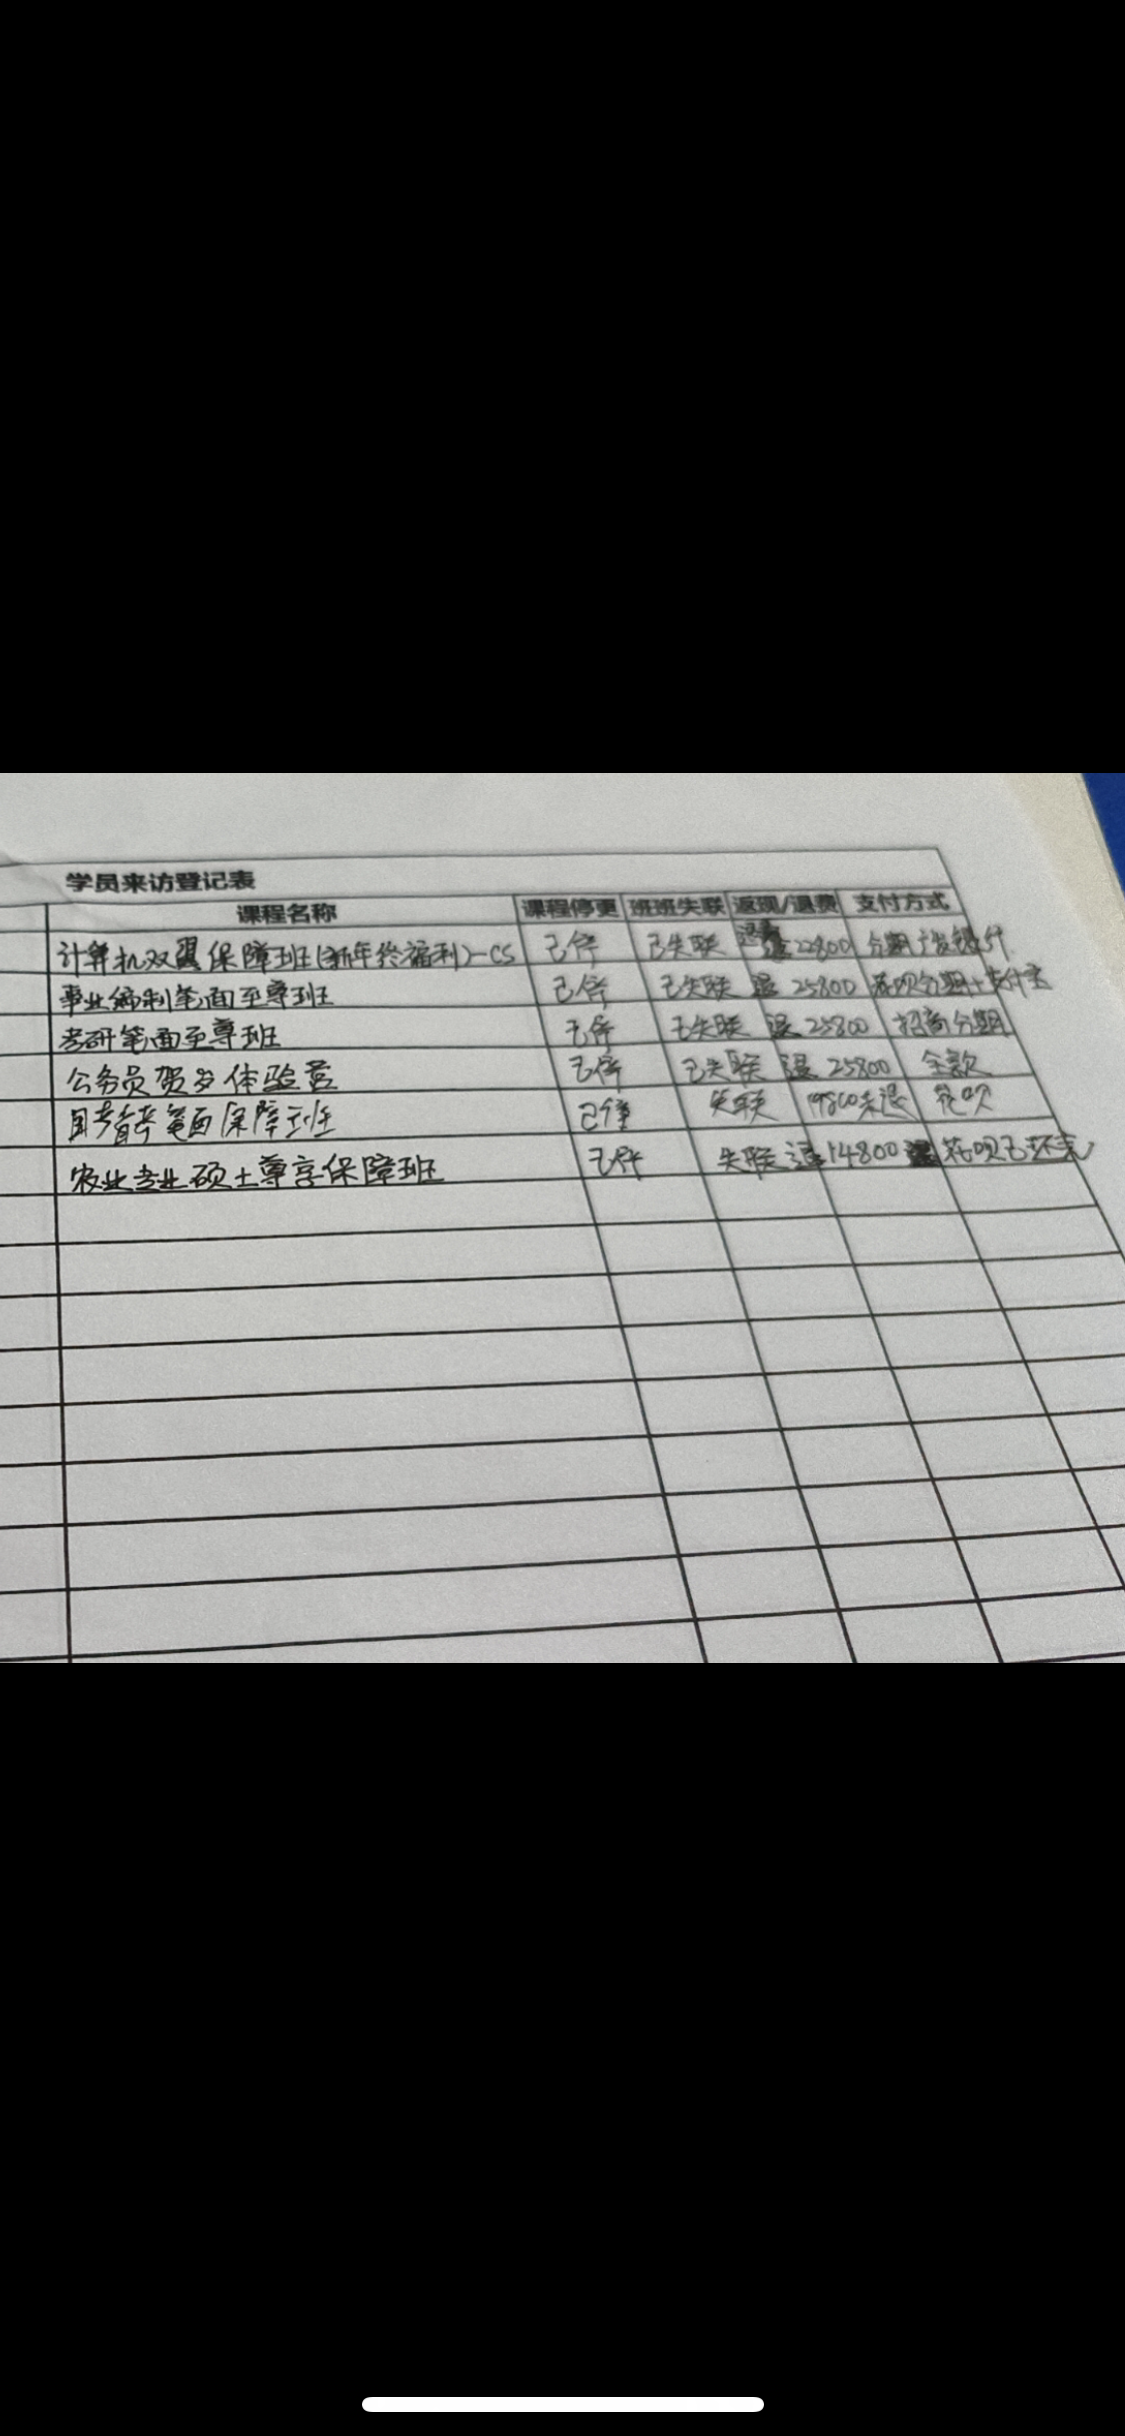 学员来访登记表
课程名称 课程停更 班班失联 返现/退费 支付方式
计算机双翼保障班(新年终福利)-CS 已停 已失联 22800 分期广发银行
事业编制笔面至尊班 已停 已失联 退 25800 花呗分期+支付宝
考研笔面至尊班 已停 已失联 退 25800 招商分期
公务员贺岁体验营 已停 已失联 退 25800 全款
国考省考笔面保障班 已停 失联 19800未退 花呗
农业专业硕士尊享保障班 已停 失联 14800 花呗已还完